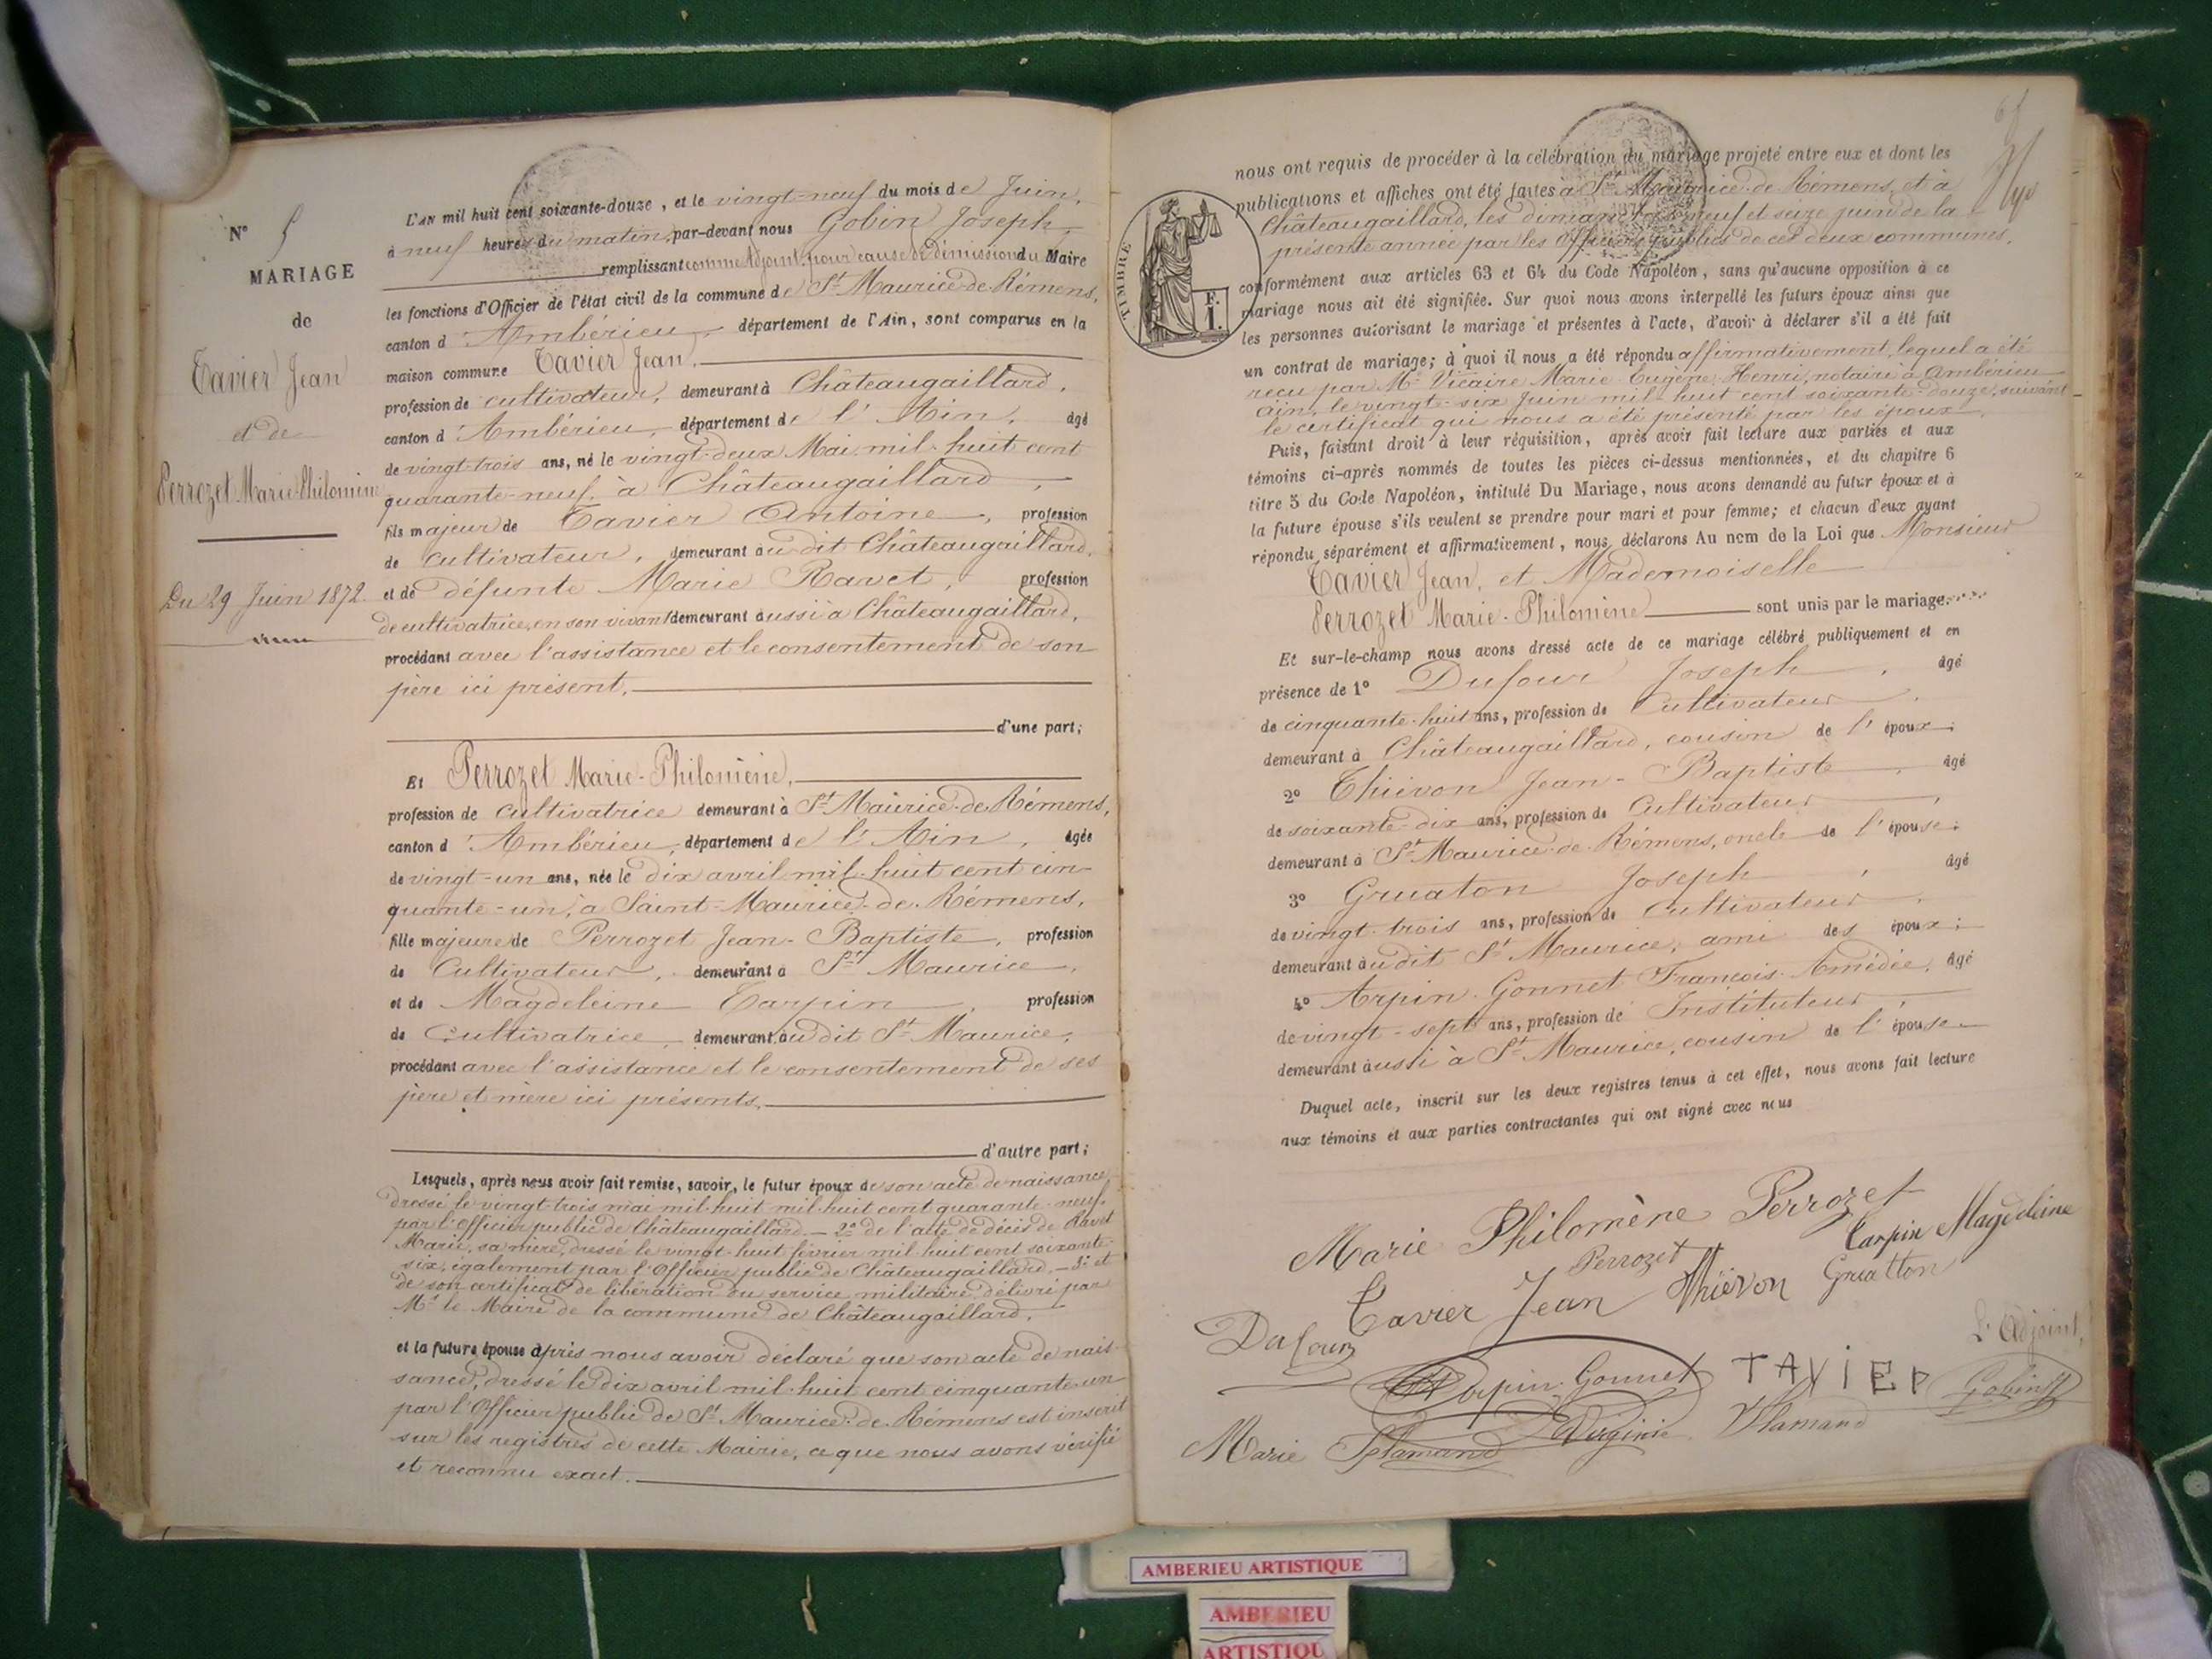 N° 5
MARIAGE
de
Tavier Jean
et de
Perrozet Marie-Philomène
Du 29 Juin 1872.
L'AN mil huit cent soixante-douze, et le vingt-neuf du mois de Juin,
à neuf heures du matin, par-devant nous Gobin Joseph,
remplissant comme Adjoint, pour cause de démission du Maire
les fonctions d'Officier de l'état civil de la commune de St Maurice-de-Rémens,
canton d'Ambérieu, département de l'Ain, sont comparus en la
maison commune Tavier Jean,
profession de cultivateur, demeurant à Châteaugaillard,
canton d'Ambérieu, département de l'Ain, âgé
de vingt-trois ans, né le vingt-deux Mai mil-huit cent
quarante-neuf, à Châteaugaillard,
fils majeur de Tavier Antoine, profession
de cultivateur, demeurant au dit Châteaugaillard,
et de défunte Marie Ravet, profession
de cultivatrice, en son vivant demeurant aussi à Châteaugaillard,
procédant avec l'assistance et le consentement de son
père ici présent.
d'une part;
Et Perrozet Marie-Philomène,
profession de cultivatrice demeurant à St Maurice-de-Rémens,
canton d'Ambérieu, département de l'Ain, âgée
de vingt-un ans, née le dix avril mil-huit cent cin-
quante-un, à Saint-Maurice-de-Rémens,
fille majeure de Perrozet Jean-Baptiste, profession
de Cultivateur, demeurant à St Maurice,
et de Magdeleine Tarpin, profession
de Cultivatrice, demeurant au dit St Maurice,
procédant avec l'assistance et le consentement de ses
père et mère ici présents.
d'autre part;
Lesquels, après nous avoir fait remise, savoir, le futur époux de son acte de naissance
dressé le vingt-trois mai mil-huit mil-huit cent quarante-neuf
par l'Officier public de Châteaugaillard. — 2° de l'acte de décès de Ravet
Marie, sa mère, dressé le vingt-huit février mil-huit cent soixante-
six, également par l'Officier public de Châteaugaillard. — 3° et
de son certificat de libération du service militaire, délivré par
Mr le Maire de la commune de Châteaugaillard,
et la future épouse après nous avoir déclaré que son acte de nais-
sance, dressé le dix avril mil-huit cent cinquante-un
par l'Officier public de St Maurice-de-Rémens est inscrit
sur les registres de cette Mairie, ce que nous avons vérifié
et reconnu exact.
TIMBRE
F.
1.
nous ont requis de procéder à la célébration du mariage projeté entre eux et dont les
publications et affiches ont été faites à St Maurice-de-Rémens, et à
Châteaugaillard, les dimanches neuf et seize juin de la
présente année par les Officiers publics de ces deux communes,
conformément aux articles 63 et 64 du Code Napoléon, sans qu'aucune opposition à ce
mariage nous ait été signifiée. Sur quoi nous avons interpellé les futurs époux ainsi que
les personnes autorisant le mariage et présentes à l'acte, d'avoir à déclarer s'il a été fait
un contrat de mariage; à quoi il nous a été répondu affirmativement, lequel a été
reçu par Me Vicaire Marie-Eugène-Henri, notaire à Ambérieu
Ain, le vingt-six Juin mil-huit cent soixante-douze, suivant
le certificat qui nous a été présenté par les époux.
Puis, faisant droit à leur réquisition, après avoir fait lecture aux parties et aux
témoins ci-après nommés de toutes les pièces ci-dessus mentionnées, et du chapitre 6
titre 5 du Code Napoléon, intitulé Du Mariage, nous avons demandé au futur époux et à
la future épouse s'ils veulent se prendre pour mari et pour femme; et chacun d'eux ayant
répondu séparément et affirmativement, nous déclarons Au nom de la Loi que Monsieur
Tavier Jean, et Mademoiselle
Perrozet Marie-Philomène sont unis par le mariage.
Et sur-le-champ nous avons dressé acte de ce mariage célébré publiquement et en
présence de 1° Dufour Joseph, âgé
de cinquante-huit ans, profession de Cultivateur,
demeurant à Châteaugaillard, cousin de l'époux;
2° Thiévon Jean-Baptiste, âgé
de soixante-dix ans, profession de Cultivateur,
demeurant à St Maurice-de-Rémens, oncle de l'épouse;
3° Gruaton Joseph, âgé
de vingt-trois ans, profession de Cultivateur,
demeurant au dit St Maurice, ami des époux;
4° Arpin-Gonnet François-Amédée, âgé
de vingt-sept ans, profession de Instituteur,
demeurant aussi à St Maurice, cousin de l'épouse
Duquel acte, inscrit sur les deux registres tenus à cet effet, nous avons fait lecture
aux témoins et aux parties contractantes qui ont signé avec nous
Marie Philomène Perrozet
Tarpin Magdeleine
Perrozet
Tavier Jean Thiévon Gruatton
Dufour
L'Adjoint,
Arpin-Gonnet TAVIER Gobin J
Marie Flamand Virginie Flamand
AMBERIEU ARTISTIQUE
AMBERIEU
ARTISTIQU